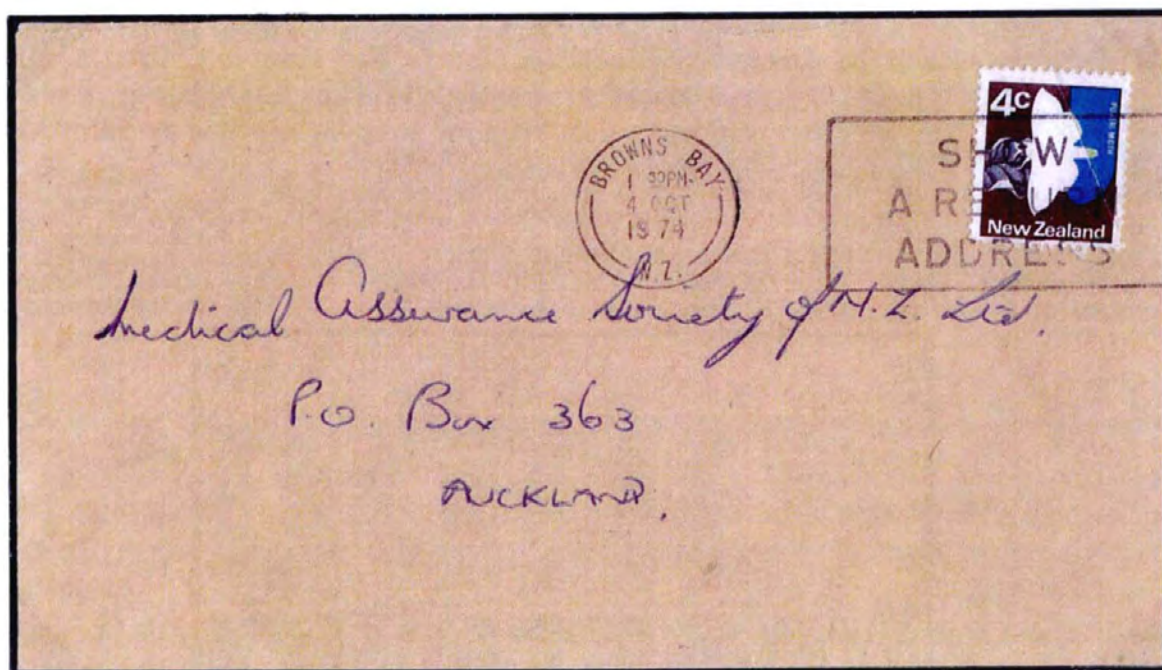 4c
BROWNS BAY
1 PM
4 OCT
1974
N.Z.
SHOW
A RETURN
ADDRESS
New Zealand
Medical Assurance Society of N.Z. Ltd.
P.O. Box 363
AUCKLAND.